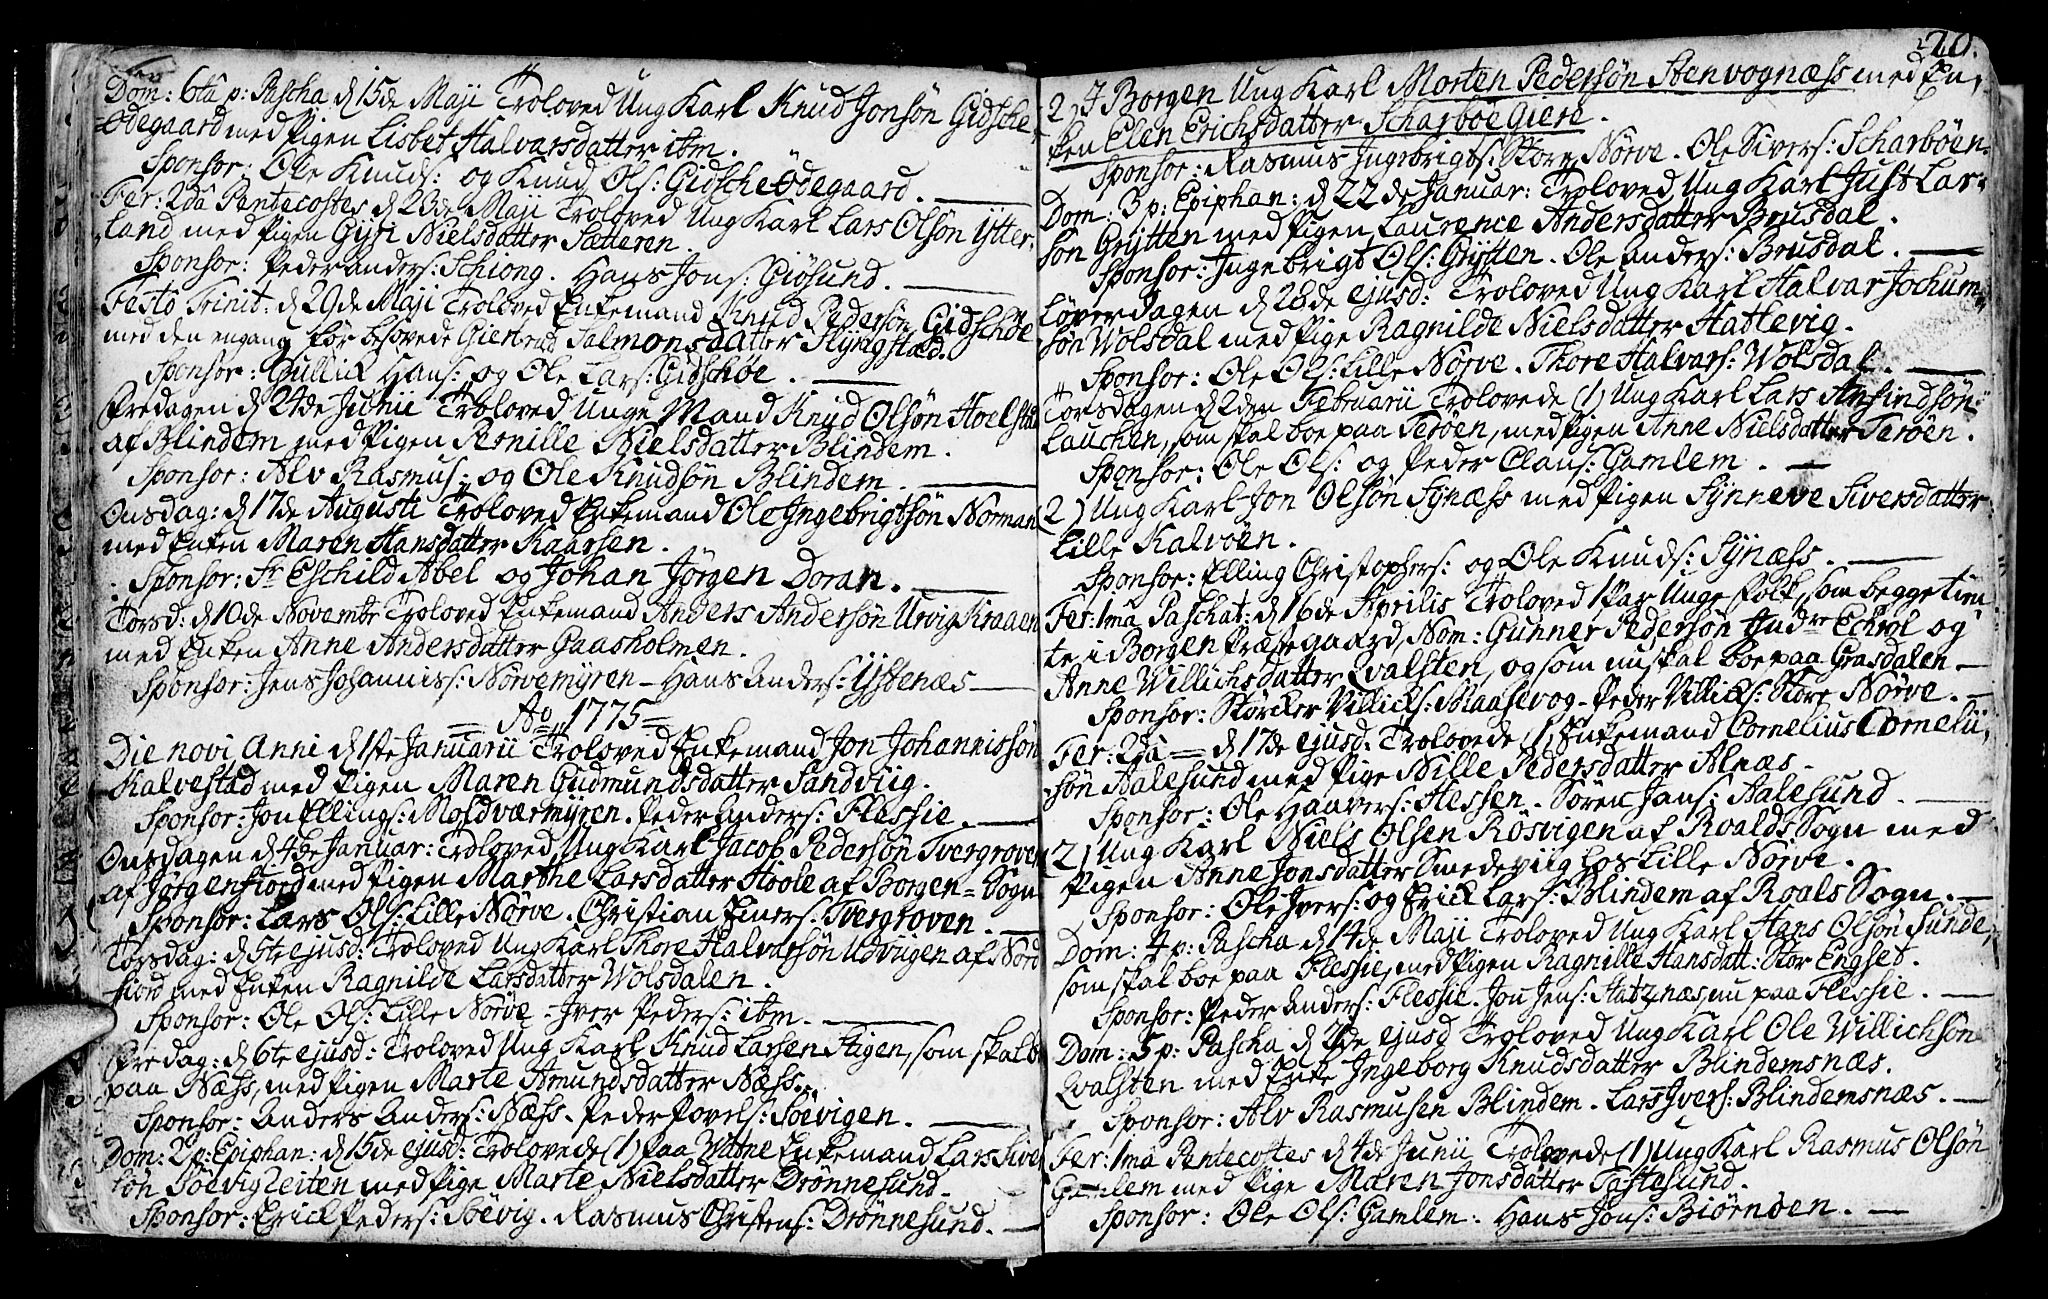 Dom: 6ta p: Pascha d 15de Maji Troloved Ung Karl Knud Jonsøn Gidsche
Ødegaard med Pigen Lisbet Halvarsdatter ibm.
Sponsor: Ole Knuds: og Knud Ols: Gidsche Ødegaard.
Fer: 2da Pentecostes d 23de Maji Troloved Ung Karl Lars Olsøn Ytter-
land med Pigen Gyri Nielsdatter Sætteren.
Sponsor: Peder Anders: Schiong. Hans Jons: Giøsund.
Festo Trinit: d 29de Maji Troloved Enkemand Knud Pedersøn Gidschøe
med den engang før besovede Giertrud Salmonsdatter
Sponsor: Gullick Hans: og Ole Lars: Gidschøe.
Fredagen d 24de Junii Troloved Unge Mand Knud Olsøn
af Blindem med Pigen Pernille Nielsdatter Blindem.
Sponsor: Alv Rasmus: og Ole Knudsøn Blindem.
Onsdag: d 17de Augusti Troloved Enkemand Ole Ingebrigtsøn Norman
med Enken Maren Hansdatter Kaarsen.
Sponsor: Sr Eschild Abel og Johan Jørgen Doran.
Torsd: d 10de Novembr Troloved Enkemand Anders Andersøn Urvig Kraaen
med Enken Anne Andersdatter Gaasholmen.
Sponsor: Jens Johannis: Nørvemyren - Hans Anders: Ystenæs
Ao 1775
Die novi Anni d 1ste Januarii Troloved Enkemand Jon Johannissøn
Kalvestad med Pigen Maren Gudmundsdatter Sandviig.
Sponsor: Jon Ellings: Moldværmyren. Peder Anders: Flessie.
Onsdagen d 4de Januar: Troloved Ung Karl Jacob Pedersøn Tvergroven
af Jørgenfiord med Pigen Marthe Larsdatter Hoole af Borgen-Sogn
Sponsor: Lars Ols: Lille Nørve. Christian Einers: Tvergroven.
Torsdag: d 5te ejusd: Troloved Ung Karl Thore Halvarsøn Udvigen af Nord
fiord med Enken Ragnilde Larsdatter Wolsdalen.
Sponsor: Ole Ols: Lille Nørve - Iver Peders: ibm.
Fredag: d 6te ejusd: Troloved Ung Karl Knud Larsen Stigen, som skal boe
paa Næss, med Pigen Marte Amundsdatter Næss.
Sponsor: Anders Anders: Næss. Peder Povels: Søevigen.
Dom: 2 p: Epiphan: d 15de ejusd: Trolovede (1) paa Vatne Enkemand Lars Siver
søn Søevigleiten med Pige Marte Nielsdatter Drønnesund.
Sponsor: Erick Peders: Søevig. Rasmus Christens: Drønnesund.
20.
2) I Borgen Ung Karl Morten Pedersøn Stenvognæss med En-
ken Elen Erichsdatter Scharbøe Giere.
Sponsor: Rasmus Ingebrigts: Store Nørve. Ole Sivers: Scharbøen.
Dom: 3 p: Epiphan: d 22de Januar: Troloved Ung Karl Just Lar-
søn Grytten med Pigen Laurence Andersdatter Brusdal.
Sponsor: Ingebrigt Ols: Grytten. Ole Anders: Brusdal.
Løverdagen d 28de ejusd: Troloved Ung Karl Halvar Jochum-
søn Wolsdal med Pige Ragnilde Nielsdatter Hatlevig.
Sponsor: Ole Ols: Lille Nørve. Thore Halvars: Wolsdal.
Torsdagen d 2den Februarii Trolovede (1) Ung Karl Lars Ansindsøn
Lauchen, som skal boe paa Terøen, med Pigen Anne Nielsdatter Terøen.
Sponsor: Ole Ols: og Peder Claus: Gamlem.
2) Ung Karl Jon Olsøn Synæss med Pigen Synneve Siversdatter
Lille Kalvøen.
Sponsor: Elling Christophers: og Ole Knuds: Synæss.
Fer: 1ma Paschat: d 16de Aprilis Troloved 1 Par Unge Folk, som begge tien-
te i Borgen Præstegaard, Nom: Gunner Pedersøn Echrol og
Anne Willichsdatter Qvalsten, og som nu skal boe paa Grasdalen
Sponsor: Størcker Villicks: Maasevog. Peder Villicks: Store Nørve.
Fer: 2da d 17de ejusd: Trolovede (1) Enkemand Cornelius Corneliu-
søn Aalesund med Pige Nille Pedersdatter Alnæs.
Sponsor: Ole Haavers: Hessen. Søren Jans: Aalesund.
2) Ung Karl Niels Olsen Røsvigen af Roalds Sogn med
Pigen Anne Jonsdatter Smedeviig hos Lille Nørve.
Sponsor: Ole Ivers: og Erick Lars: Blindem af Roals Sogn.
Dom: 4 p: Pascha d 14de Maji Troloved Ung Karl Hans Olsøn Sunde,
som skal boe paa Flessie, med Pigen Ragnille Hansdatt: Stor Engset.
Sponsor: Peder Anders: Flessie. Jon Jens: Hatznæs, nu paa Flessie.
Dom: 5 p: Pascha d ejusd Troloved Ung Karl Ole Willichsøn
Qvalsten med Enke Ingeborg Knudsdatter Blindemsnæs.
Sponsor: Alv Rasmusen Blindem. Lars Ivers: Blindemsnæs.
Fer: 1ma Pentecostes d 4de Junii Trolovede (1) Ung Karl Rasmus Olsøn
Gamlem med Pige Maren Jonsdatter Tæftesund.
Sponsor: Ole Ols: Gamlem. Hans Jons: Biørnøen.